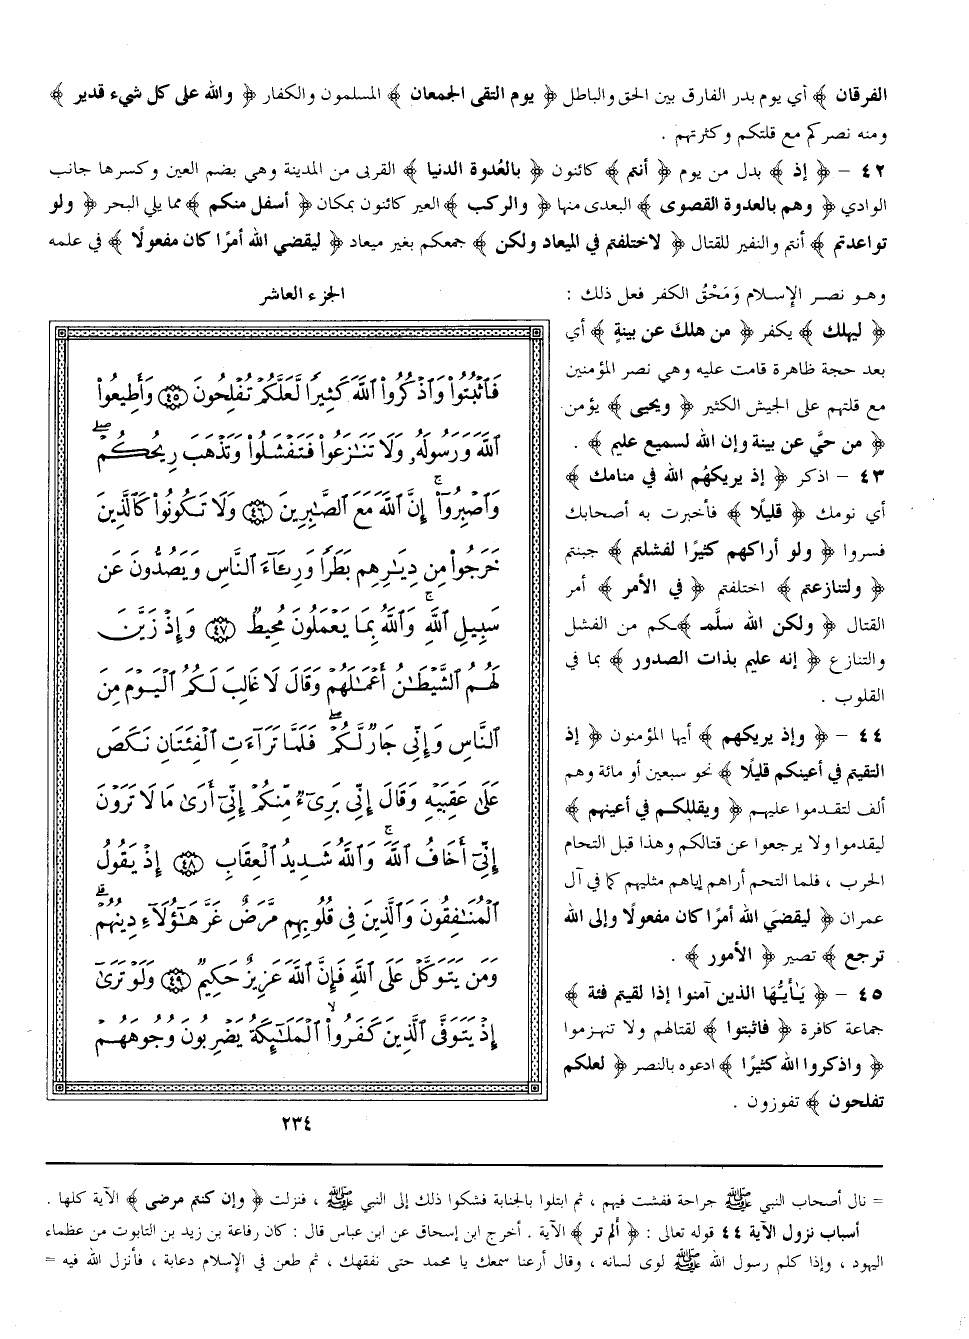 الفرقان ﴾ أي يوم بدر الفارق بين الحق والباطل ﴿ يوم التقى الجمعان ﴾ المسلمون والكفار ﴿ والله على كل شيء قدير ﴾
ومنه نصركم مع قلتكم وكثرتهم .
٤٢ – ﴿ إذ ﴾ بدل من يوم ﴿ أنتم ﴾ كائنون ﴿ بالعُدوة الدنيا ﴾ القربى من المدينة وهي بضم العين وكسرها جانب
الوادي ﴿ وهم بالعدوة القصوى ﴾ البعدى منها ﴿ والركب ﴾ العير كائنون بمكان ﴿ أسفل منكم ﴾ مما يلي البحر ﴿ ولو
تواعدتم ﴾ أنتم والنفير للقتال ﴿ لاختلفتم في الميعاد ولكن ﴾ جمعكم بغير ميعاد ﴿ ليقضي الله أمرًا كان مفعولًا ﴾ في علمه
وهـو نصـر الإسـلام وَمَحْقُ الكفر فعل ذلك :
﴿ ليهلك ﴾ يكفر ﴿ من هلك عن بينةٍ ﴾ أي
بعد حجة ظاهرة قامت عليه وهي نصر المؤمنين
مع قلتهم على الجيش الكثير ﴿ ويحيى ﴾ يؤمن
﴿ من حيَّ عن بينة وإن الله لسميع عليم ﴾ .
٤٣ – اذكر ﴿ إذ يريكهُم الله في منامك ﴾
أي نومك ﴿ قليلًا ﴾ فأخبرت به أصحابك
فسروا ﴿ ولو أراكهم كثيرًا لفشلتم ﴾ جبنتم
﴿ ولتنازعتم ﴾ اختلفتم ﴿ في الأمر ﴾ أمر
القتال ﴿ ولكن الله سلَّمـ ﴾ـكم من الفشل
والتنازع ﴿ إنه عليم بذات الصدور ﴾ بما في
القلوب .
٤٤ – ﴿ وإذ يريكهم ﴾ أيها المؤمنون ﴿ إذ
التقيتم في أعينكم قليلًا ﴾ نحو سبعين أو مائة وهم
ألف لتقدموا عليهم ﴿ ويقللكم في أعينهم ﴾
ليقدموا ولا يرجعوا عن قتالكم وهذا قبل التحام
الحرب ، فلما التحم أراهم إياهم مثليهم كما في آل
عمران ﴿ ليقضيَ الله أمرًا كان مفعولًا وإلى الله
ترجع ﴾ تصير ﴿ الأمور ﴾ .
٤٥ – ﴿ يَـأيـُّهَا الذين آمنوا إذا لقيتم فئة ﴾
جماعة كافرة ﴿ فاثبتوا ﴾ لقتالهم ولا تنهزموا
﴿ واذكروا الله كثيرًا ﴾ ادعوه بالنصر ﴿ لعلكم
تفلحون ﴾ تفوزون .
الجزء العاشر
فَٱثۡبُتُواْ وَٱذۡكُرُواْ ٱللَّهَ كَثِيرٗا لَّعَلَّكُمۡ تُفۡلِحُونَ ٤٥ وَأَطِيعُواْ
ٱللَّهَ وَرَسُولَهُۥ وَلَا تَنَٰزَعُواْ فَتَفۡشَلُواْ وَتَذۡهَبَ رِيحُكُمۡۖ
وَٱصۡبِرُوٓاْۚ إِنَّ ٱللَّهَ مَعَ ٱلصَّٰبِرِينَ ٤٦ وَلَا تَكُونُواْ كَٱلَّذِينَ
خَرَجُواْ مِن دِيَٰرِهِم بَطَرٗا وَرِئَآءَ ٱلنَّاسِ وَيَصُدُّونَ عَن
سَبِيلِ ٱللَّهِۚ وَٱللَّهُ بِمَا يَعۡمَلُونَ مُحِيطٞ ٤٧ وَإِذۡ زَيَّنَ
لَهُمُ ٱلشَّيۡطَٰنُ أَعۡمَٰلَهُمۡ وَقَالَ لَا غَالِبَ لَكُمُ ٱلۡيَوۡمَ مِنَ
ٱلنَّاسِ وَإِنِّي جَارٞ لَّكُمۡۖ فَلَمَّا تَرَآءَتِ ٱلۡفِئَتَانِ نَكَصَ
عَلَىٰ عَقِبَيۡهِ وَقَالَ إِنِّي بَرِيٓءٞ مِّنكُمۡ إِنِّيٓ أَرَىٰ مَا لَا تَرَوۡنَ
إِنِّيٓ أَخَافُ ٱللَّهَۚ وَٱللَّهُ شَدِيدُ ٱلۡعِقَابِ ٤٨ إِذۡ يَقُولُ
ٱلۡمُنَٰفِقُونَ وَٱلَّذِينَ فِي قُلُوبِهِم مَّرَضٌ غَرَّ هَٰٓؤُلَآءِ دِينُهُمۡۗ
وَمَن يَتَوَكَّلۡ عَلَى ٱللَّهِ فَإِنَّ ٱللَّهَ عَزِيزٌ حَكِيمٞ ٤٩ وَلَوۡ تَرَىٰٓ
إِذۡ يَتَوَفَّى ٱلَّذِينَ كَفَرُواْۙ ٱلۡمَلَٰٓئِكَةُ يَضۡرِبُونَ وُجُوهَهُمۡ
٢٣٤
= نال أصحاب النبي ﷺ جراحة ففشت فيهم ، ثم ابتلوا بالجنابة فشكوا ذلك إلى النبي ﷺ ، فنزلت ﴿ وإن كنتم مرضى ﴾ الآية كلها .
أسباب نزول الآية ٤٤ قوله تعالى : ﴿ ألم تر ﴾ الآية . أخرج ابن إسحاق عن ابن عباس قال : كان رفاعة بن زيد بن التابوت من عظماء
اليهود ، وإذا كلم رسول الله ﷺ لوى لسانه ، وقال أرعنا سمعك يا محمد حتى نفقهك ، ثم طعن في الإسلام دعابة ، فأنزل الله فيه =